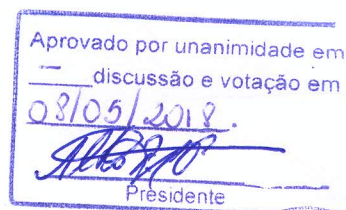 Aprovado por unanimidade em
— discussão e votação em
08/05/2018.
Presidente